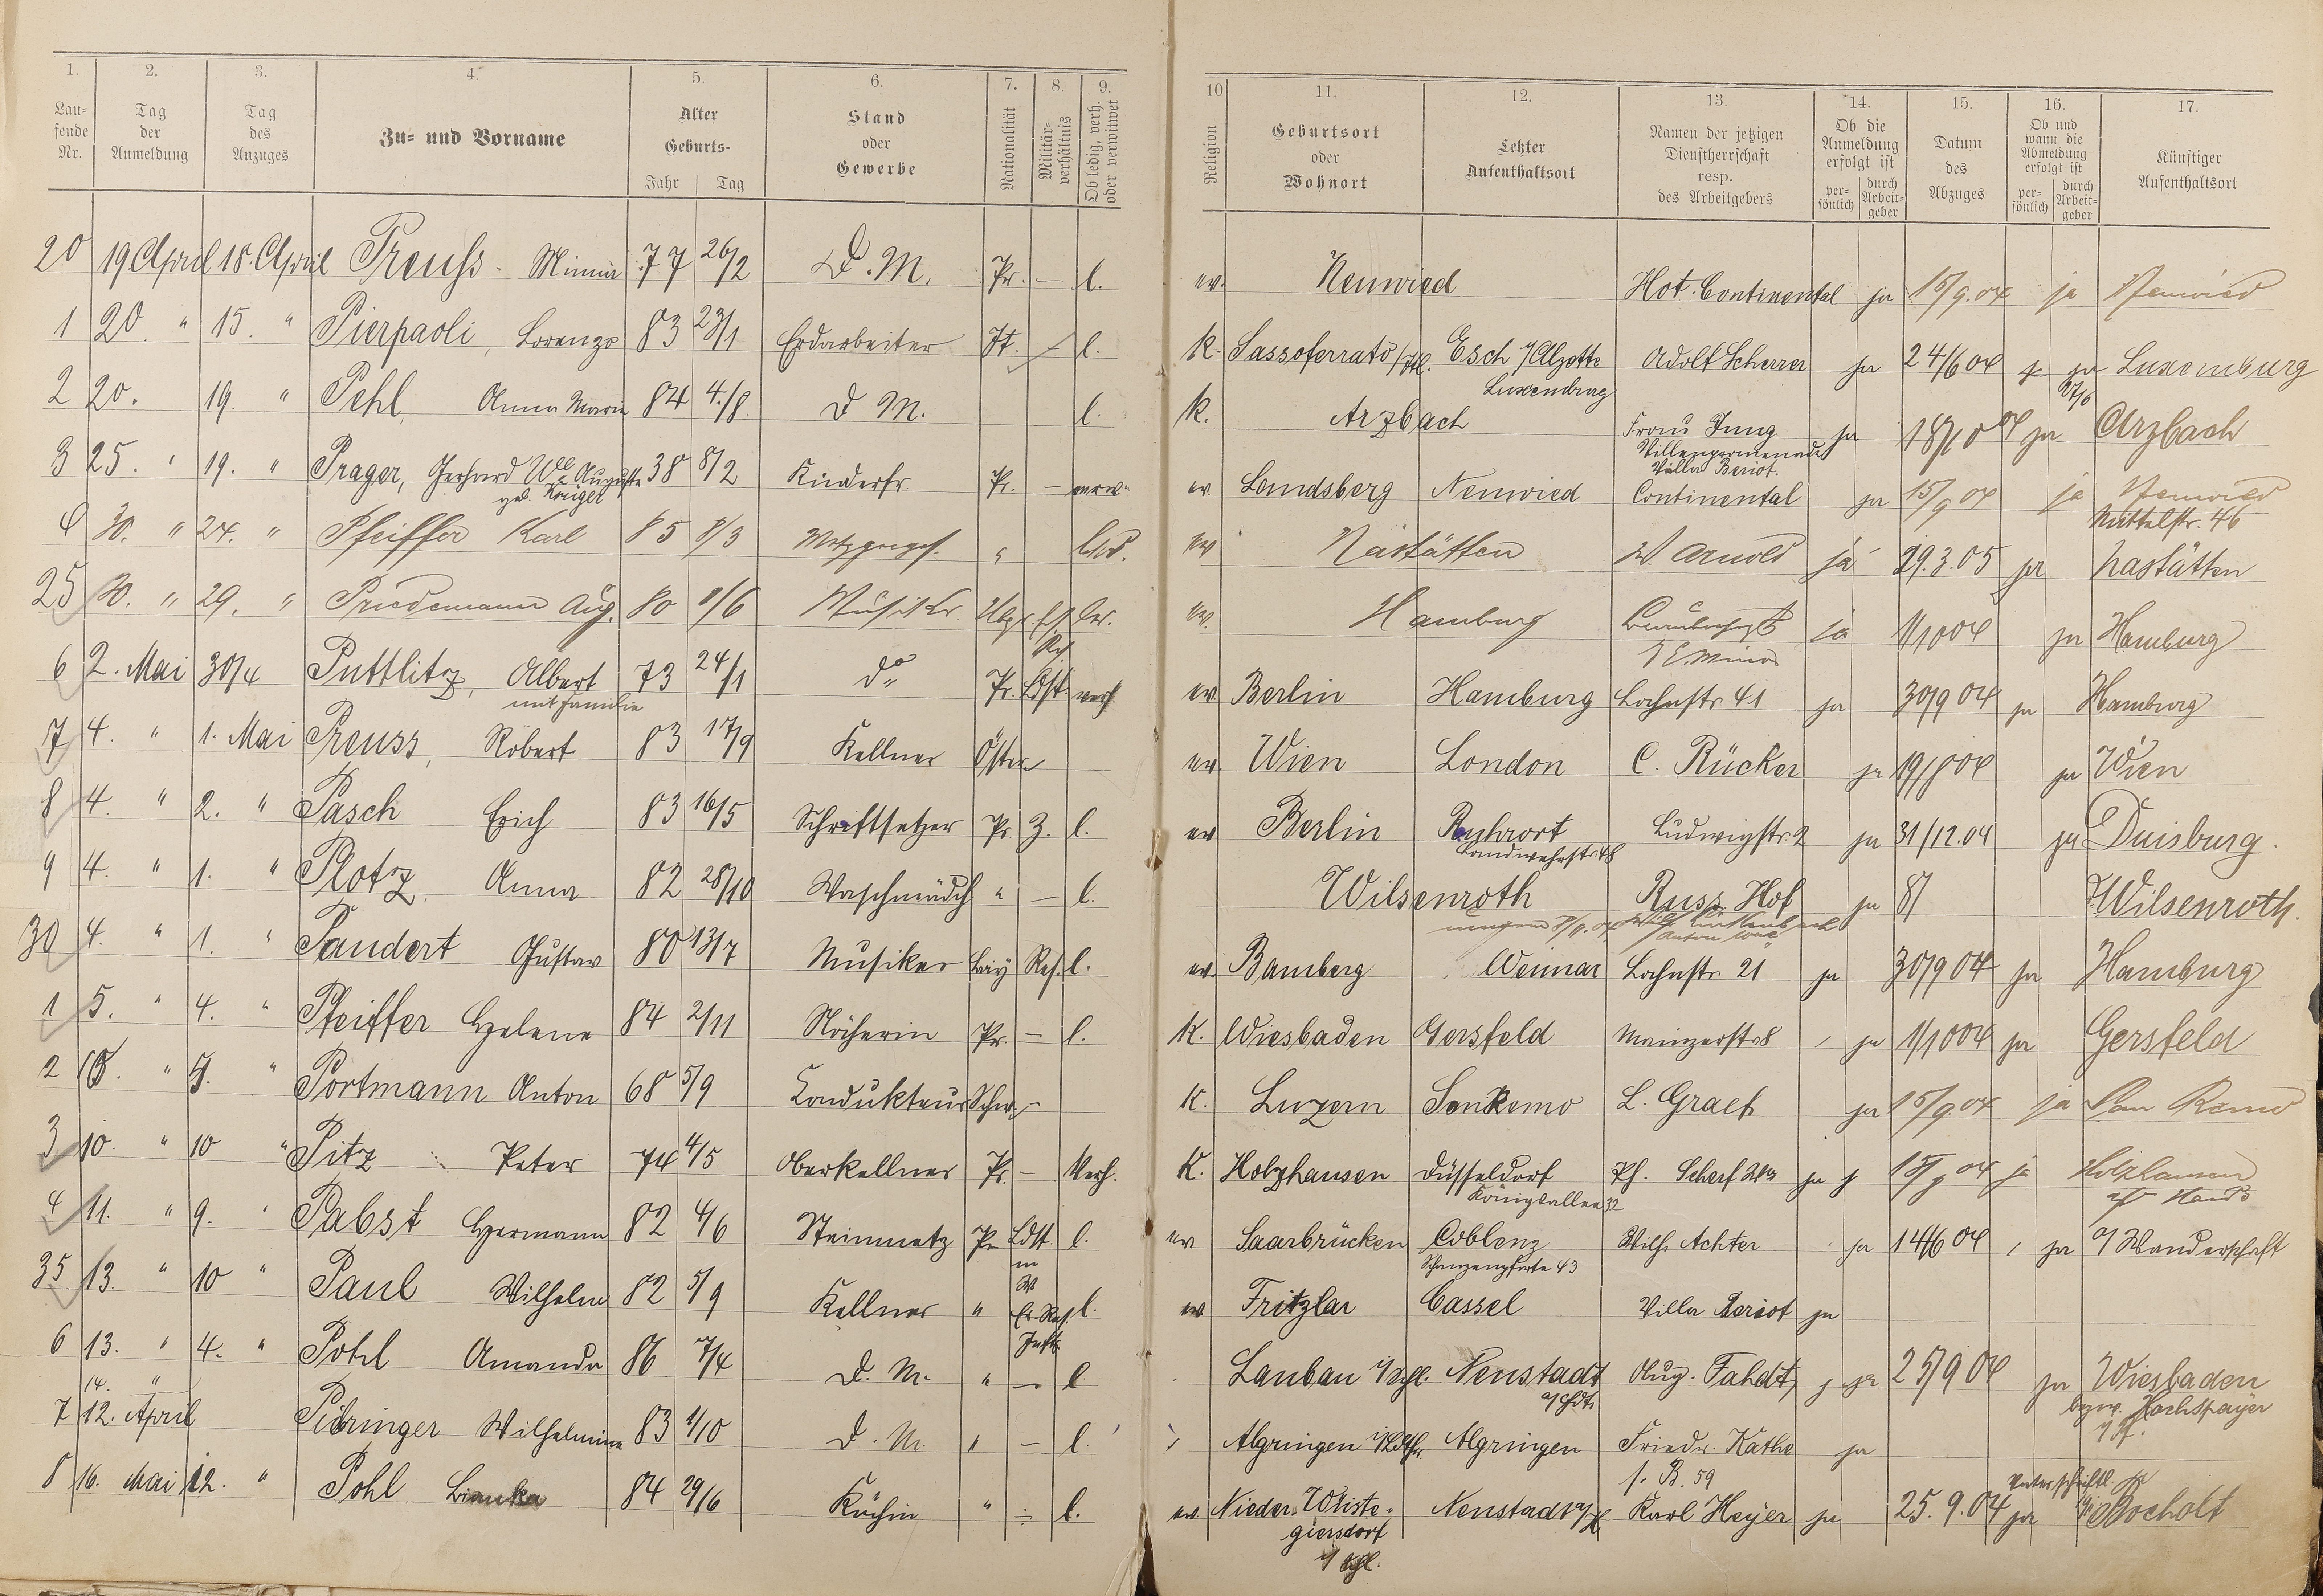 1. 2. 3. 4. 5. 6. 7. 8. 9. 10 11. 12. 13. 14. 15. 16. 17.
Lau-fende Nr. Tag der Anmeldung Tag des Anzuges Zu- und Vorname Alter Geburts- Jahr Tag Stand oder Gewerbe Nationalität Militär-verhältnis Ob ledig, verh. oder verwitwet Religion Geburtsort oder Wohnort Letzter Aufenthaltsort Namen der jetzigen Dienstherrschaft resp. des Arbeitgebers Ob die Anmeldung erfolgt ist per-sönlich durch Arbeit-geber Datum des Abzuges Ob und wann die Abmeldung erfolgt ist per-sönlich durch Arbeit-geber Künftiger Aufenthaltsort
20 19 April 18. April Preuss Minna 77 26/2 D. M. Pr. — l. ev. Neuwied Hot. Continental ja 15/9.04 ja Neuwied
1 20. " 15. " Pierpaoli, Lorenzo 83 23/1 Erdarbeiter It. — l. K. Sassoferrato/Itl. Esch a/Alzette Adolf Scherrer ja 24/6 04 ja Luxemburg
Luxemburg 27/6
2 20. 19. " Pehl, Anna Maria 84 4./8. D M. l. K. Arzbach Frau Jung ja 18/10 04 ja Arzbach
Villenpromenade
Villa Beriot.
3 25. " 19. " Prager, Gerhard Wwe Auguste 38 8/2 Kinderfr Pr. — verw. ev Landsberg Neuwied Continental ja 15/9 04 ja Neuwied
geb. Krüger Mittelstr. 46
4 30. " 24. " Pfeiffer Karl 85 8/3 Metzgerges. " led. ev Nastätten W. Arnold ja 29.3.05 ja Nastätten
25 30. " 29. " Priedemann Aug. 80 8/6 Musiker ev. Hamburg ja 1/10 04 ja Hamburg
6 2. Mai 30/4 Puttlitz, Albert 73 24/1 do Pr. Ldst verh ev Berlin Hamburg Lahnstr. 41 ja 30/9 04 ja Hamburg
mit Familie
7 4. " 1. Mai Preuss, Robert 83 17/9 Kellner Öster ev. Wien London C. Rücker ja 19/8 04 ja Wien
8 4. " 2. " Pasch Erich 83 16/5 Schriftsetzer Pr 3. l. ev Berlin Ruhrort Ludwigstr. 2 ja 31/12.04 ja Duisburg.
Landwehrstr. 48
9 4. " 1. " Plotz Anna 82 28/10 Waschmädch " — l. Wilsenroth Russ. Hof ja 8/ Wilsenroth.
30 4. " 1. " Pandert Gustav 80 13/7 Musiker Bay Res. l. ev. Bamberg Weimar Lahnstr. 21 ja 30/9 04 ja Hamburg
1 5. " 4. " Pfeiffer Helene 84 2/11 Näherin Pr. — l. K. Wiesbaden Gersfeld Mainzerstr. 8 ja 1/10 04 ja Gersfeld
2 " " Portmann Anton 68 5/9 Kondukteur Schw. — K. Luzern San Remo L. Graef ja 15/9.04 ja San Remo
3 10. " 10 " Pitz Peter 74 4/5 Oberkellner Pr. — Verh. K. Holzhausen Düsseldorf Ph. Scherf Wwe ja 15/9 04 ja Holzhausen
Königsallee 32 a/d Haide
4 11. " 9. " Pabst Hermann 82 4/6 Steinmetz Pr Ldst. l. ev Saarbrücken Coblenz Wilh. Achter ja 14/6 04 ja a/Wanderschaft
Schanzenpforte 43
35 13. " 10 " Paul Wilhelm 82 5/9 Kellner " Er. Res. l. ev Fritzlar Cassel Villa Beriot ja
6 13. " 4. " Pohl Amanda 86 7/4 D. M. " — l Lauban i/Schl. Neustadt Aug. Fahdt, ja 25/9 04 ja Wiesbaden
a/Hdt. bzw. Hochspeyer
14. "
7 12. April Piringer Wilhelmine 83 1/10 D. M. " — l. Algringen Algringen Friedr. Kathe ja
f. B. 59
8 16. Mai 12. " Pohl Bianka 84 29/6 Köchin " — l. ev. Nieder-Wüste- Neustadt a/H Karl Heyer ja 25. 9. 04 ja Bocholt
giersdorf
i/Schl.